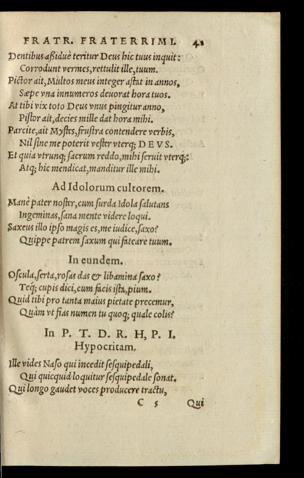 FRATR. FRATERRIMI. 41
Dentibus aßiduè teritur Deus hic tuus inquit:
Corrodunt vermes, rettulit ille, tuum.
Pictor ait, Multos meus integer astat in annos,
Sæpe vna innumeros deuorat hora tuos.
At tibi vix toto Deus vnus pingitur anno,
Pistor ait, decies mille dat hora mihi.
Parcite, ait Mystes, frustra contendere verbis,
Nil sine me poterit vester vterq; DEVS.
Et quia vtrunq; sacrum reddo, mihi seruit vterq;:
Atq; hic mendicat, manditur ille mihi.
Ad Idolorum cultorem.
Manè pater noster, cum surda Idola salutans
Ingeminas, sana mente videre loqui.
Saxeus illo ipso magis es, me iudice, saxo?
Quippe patrem saxum qui fateare tuum.
In eundem.
Oscula, serta, rosas das & libamina saxo?
Teq; cupis dici, cum facis ista, pium.
Quid tibi pro tanta maius pietate precemur,
Quàm vt fias numen tu quoq; quale colis?
In P. T. D. R. H, P. I.
Hypocritam.
Ille vides Naso qui incedit sesquipedali,
Qui quicquid loquitur sesquipedale sonat.
Qui longo gaudet voces producere tractu,
C 5 Qui